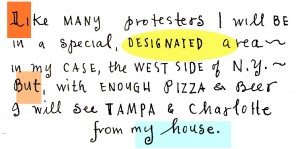 Like MANY protesters I will BE
in a special, DESIGNATED area~
in my CASE, the WEST SIDE of N.Y. ~
But, with ENOUGH PIZZA & Beer
I will see TAMPA & Charlotte
from my house.